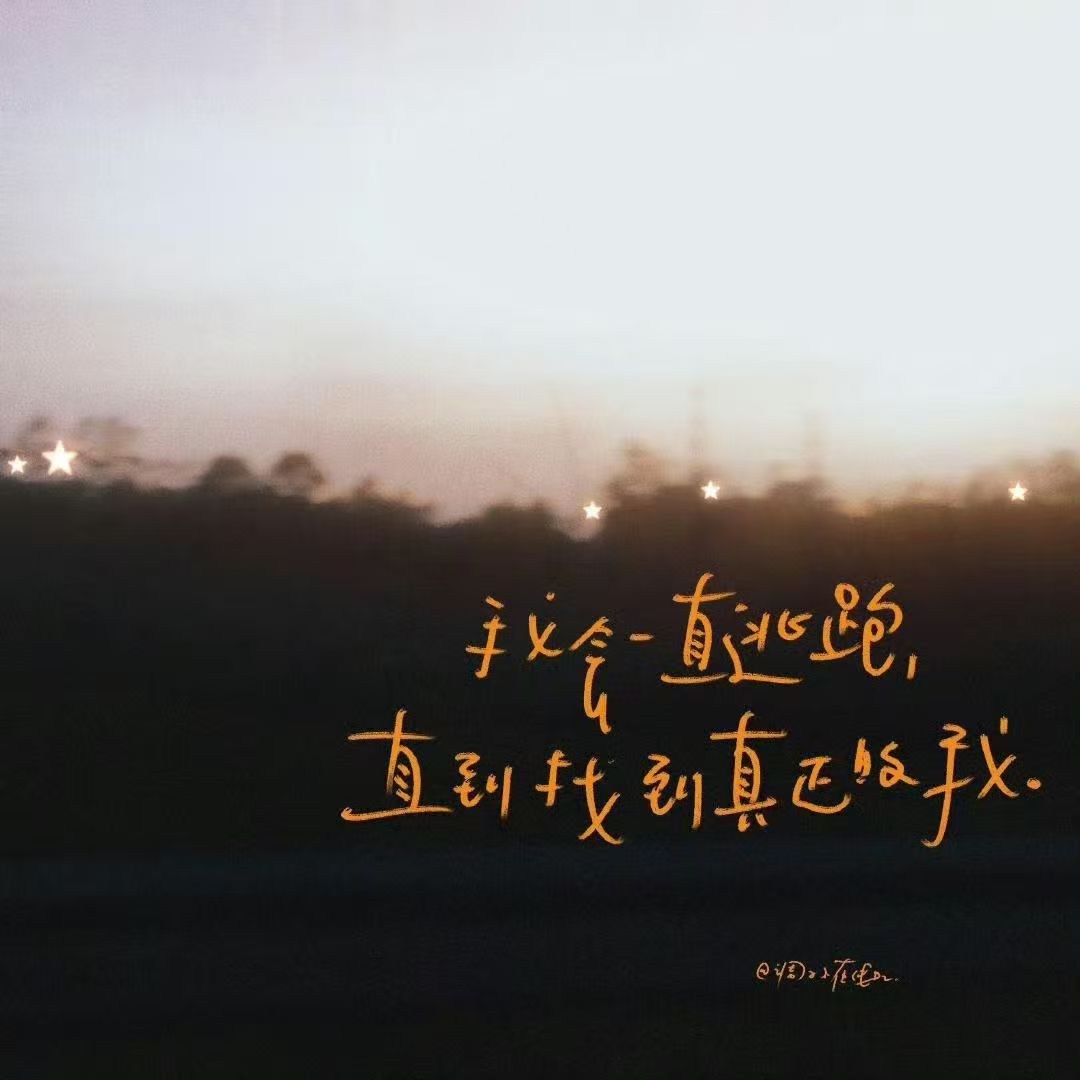 我会一直逃跑,
直到找到真正的我.